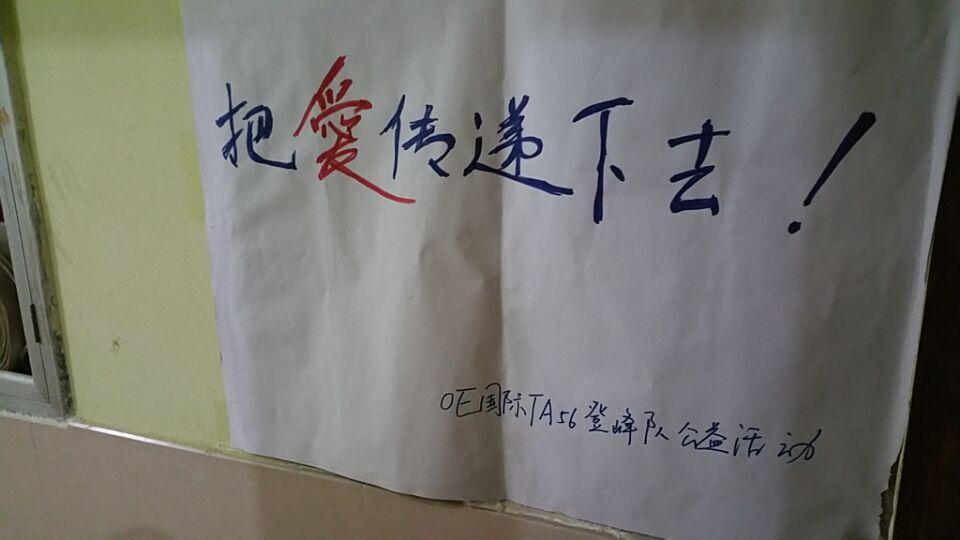 把愛传递下去！
OE国际TA56登峰队公益活动